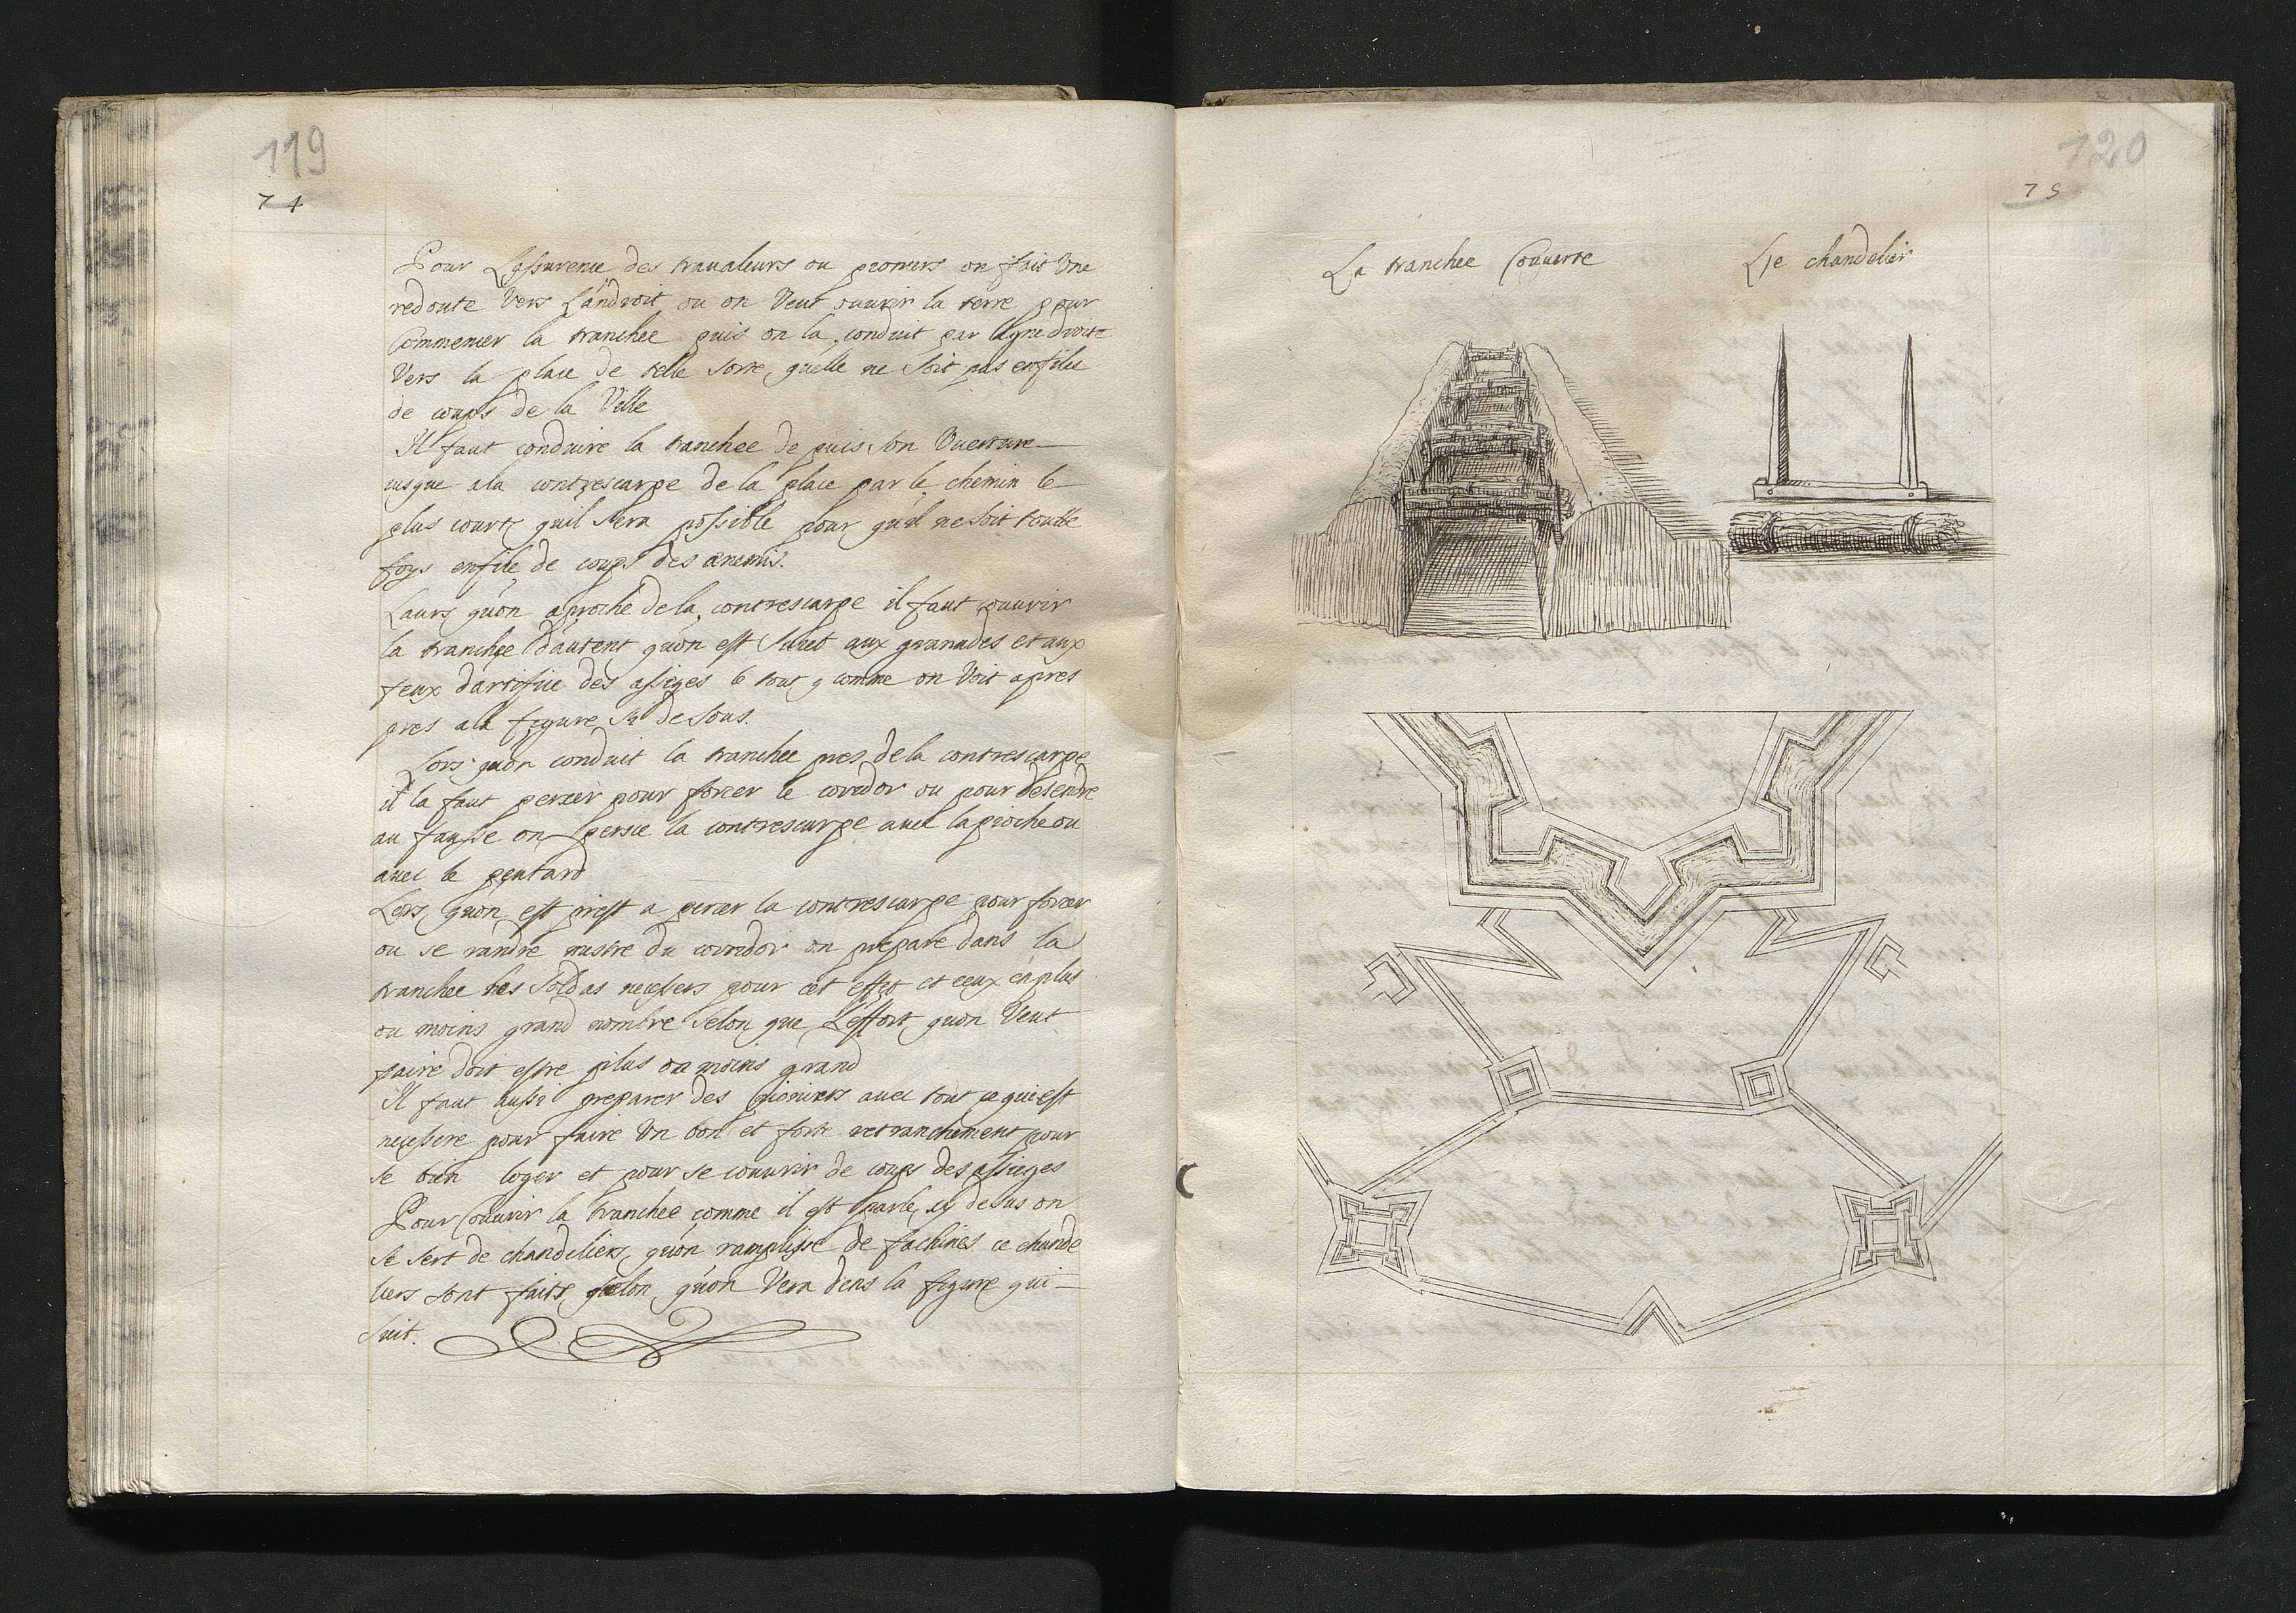 119
74
Pour Lassurence des travaleurs ou pioniers on fait Vne
redoute Vers L'androit ou on Veut ouurir la terre pour
Commencer la tranchee puis on la conduit par ligne droite
Vers la place de telle sorte quelle ne soit pas enfilee
de coups de la Ville
Il faut conduire la tranchee de puis son Vuerture
iusque ala contrescarpe de la place par le chemin le
plus court quil sera possible pour qu'il ne soit toutte
foys enfile de coups des anemis.
Laurs qu'on aproche de la contrescarpe il faut couurir
la tranchee d'autent qu'on est suiet aux granades et aux
feux d'artifice des assieges le tout comme on Voit apres
pres ala figure de sous.
Lors qu'on conduit la tranchee pres de la contrescarpe
il la faut percer pour forcer le coridor ou pour desendre
au fausse on perse la contrescarpe auec la pioche ou
auec le peutard
Lors qu'on est prest a percer la contrescarpe pour forcer
ou se randre mastre du coridor on prepare dans la
tranchee les soldas necessers pour cet effet et ceux en plus
ou moins grand nombre selon que L'effort qu'on Veut
faire doit estre plus ou moins grand
Il faut aussi preparer des pioniers auec tout ce qui est
necessere pour faire Vn bon et fort retranchement pour
se bien loger et pour se couurir de coups des assieges
Pour Couurir la tranchee comme il est parle cy desus on
se sert de chandeliers qu'on ramplisse de fachines ce chande
liers sont faits selon qu'on Vera dens la figure qui
suit.
120
75
La tranchee Couuerte
Le chandelier